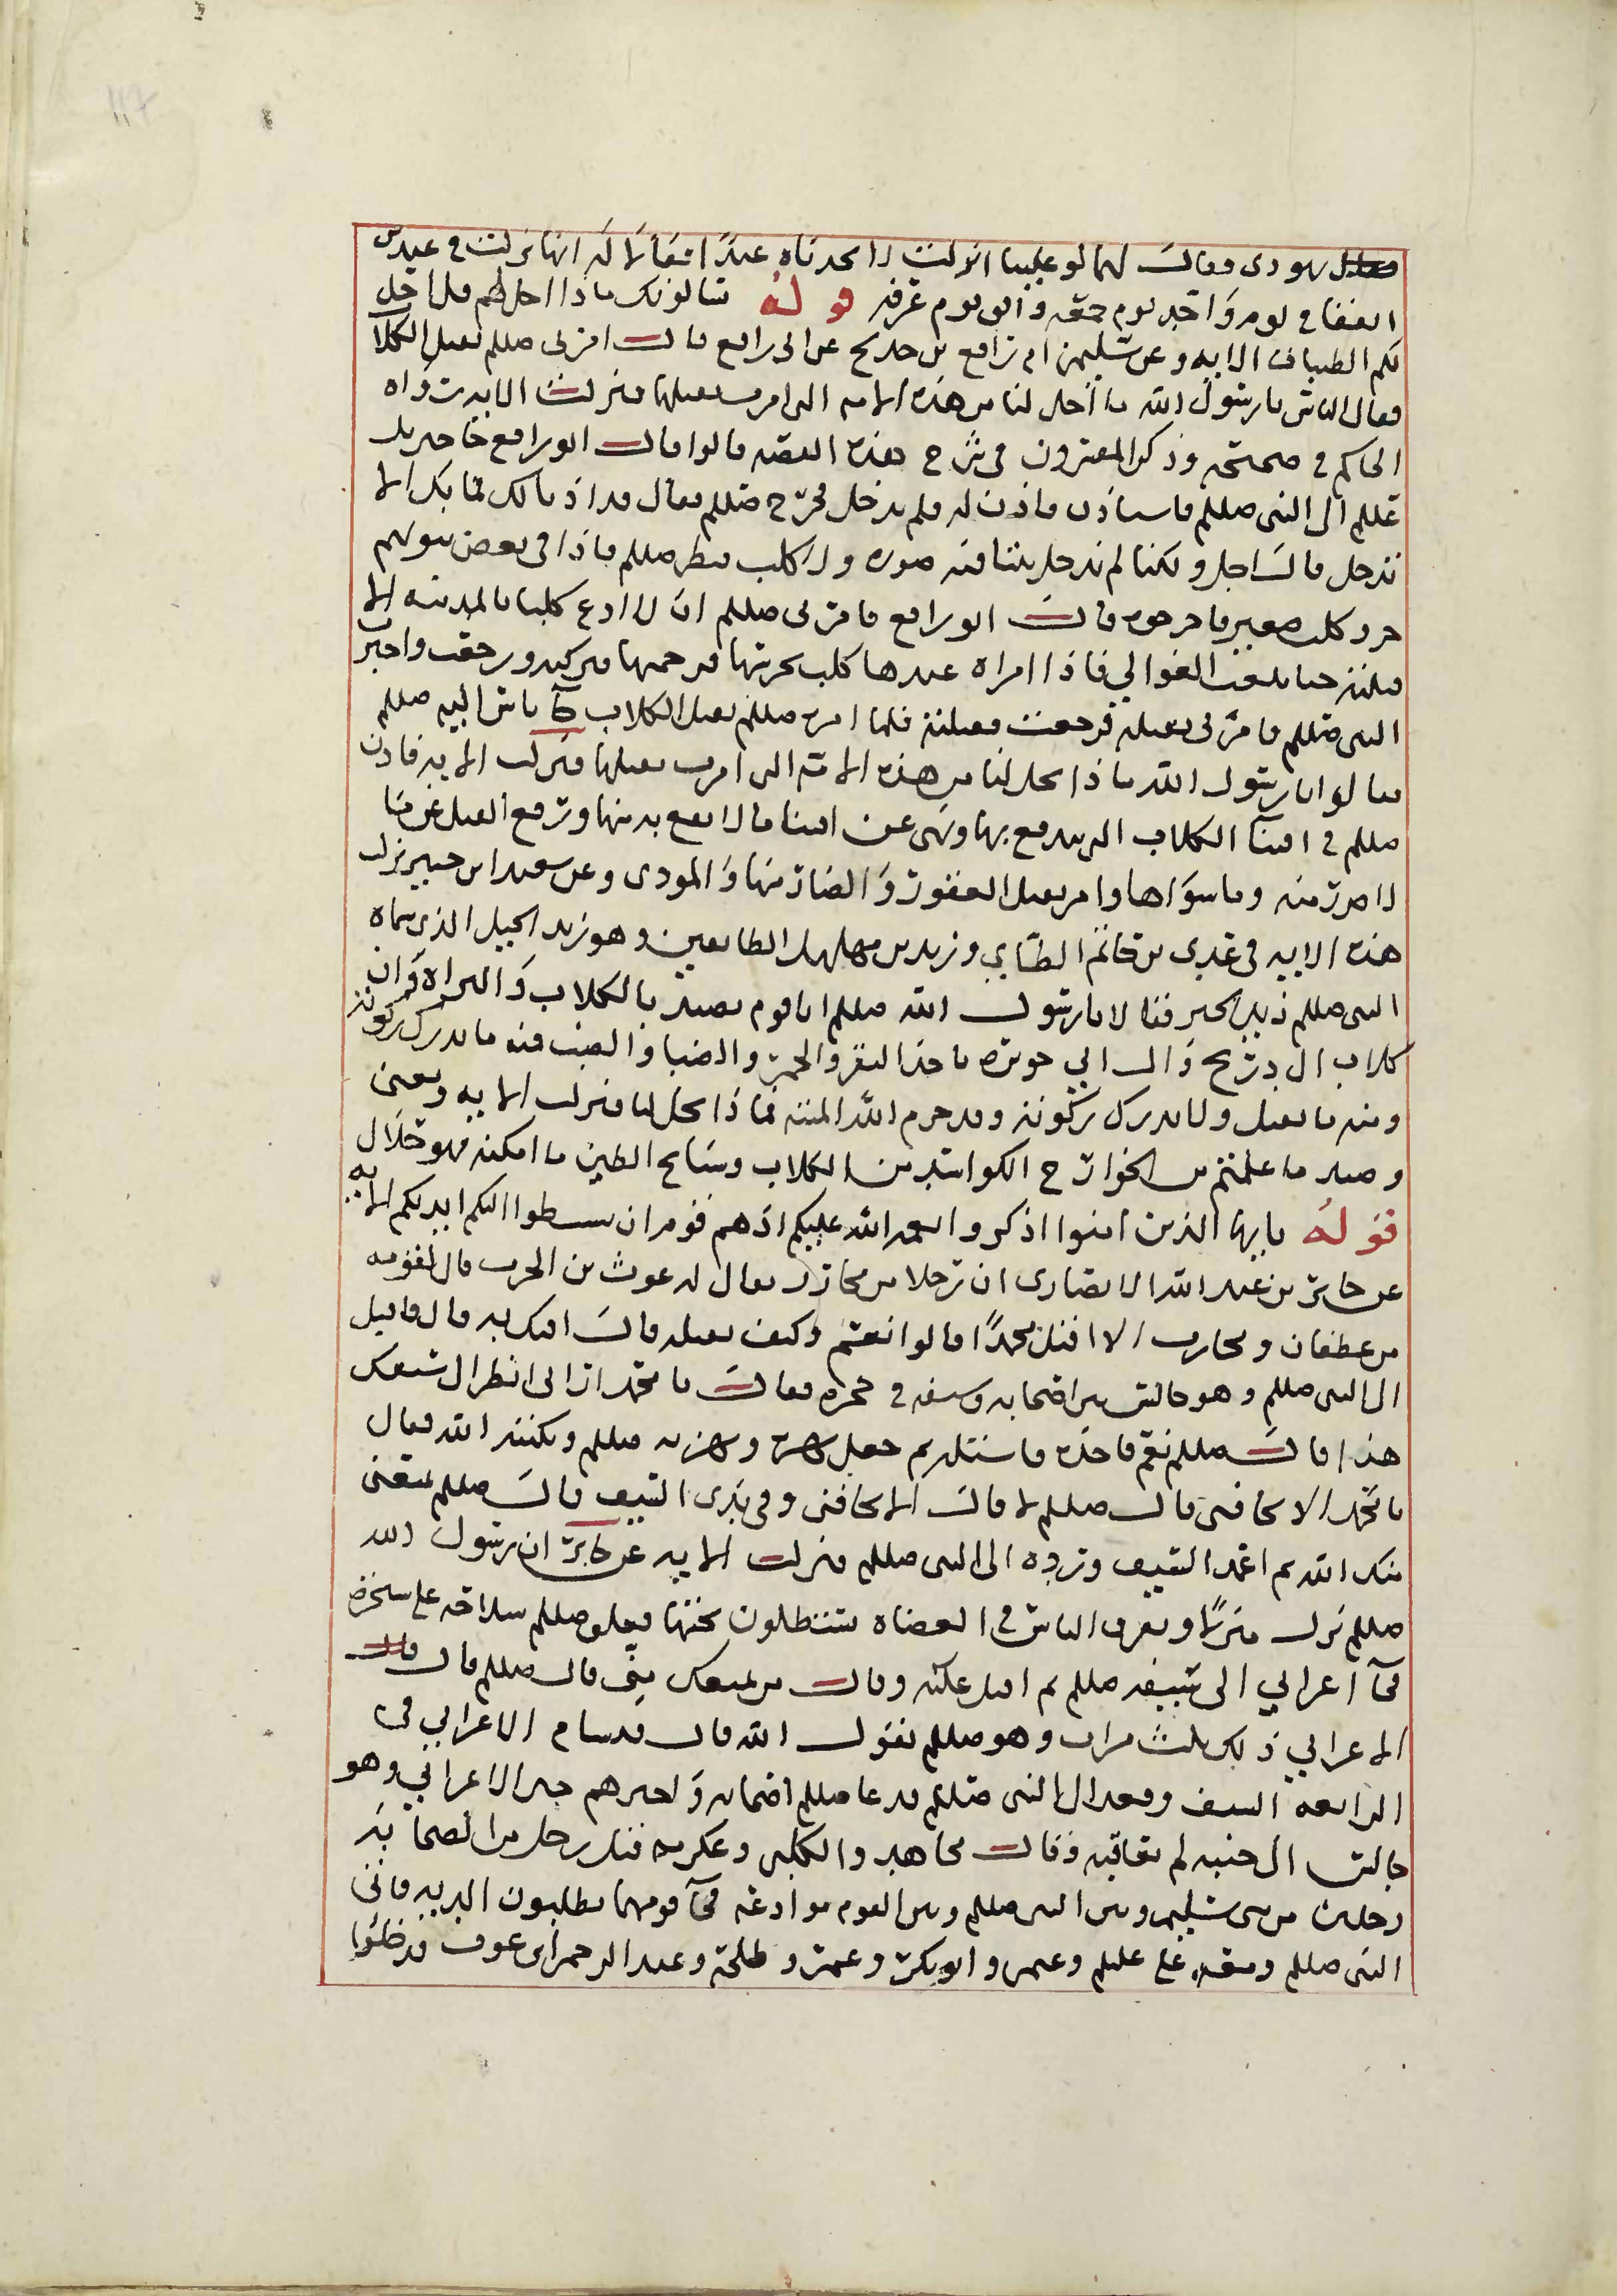 يهودى فقال لهما لو علينا انزلت لاتخذناه عيدا فقالا له انها نزلت في عيدين
اتفقا في يوم واحد يوم جمعة وافق يوم عرفه قوله يسالونك ماذا احل لهم قل احل
لكم الطيبات الايه وعن سليمى ام رافع عن ابى رافع قال امرنى صللم بقتل الكلاب
فقال الناس يا رسول الله ما احل لنا من هذه الامه التى امرت بقتلها فنزلت الايه رواه
الحاكم في صحيحه وذكر المفسرون في شرح هذه القصه قالوا قال ابو رافع جا جبريل
عللم الى النبى صللم فاستاذن فاذن له فلم يدخل فخرج صللم فقال قد اذنا لك فما بك الا
تدخل قال اجل ولكنا لم ندخل بيتا فيه صوره ولا كلب فنظر صللم فاذا في بعض بيوتهم
جرو كلب صغير فاخرجوه قال ابو رافع فامرنى صللم ان لا ادع كلبا بالمدينه الا
قتلته حتى بلغت العوالي فاذا امراه عندها كلب يحرسها فرحمتها فتركته ورجعت واخبرت
النبى صللم فامرنى بقتله فرجعت فقتلته فلما امر صللم بقتل الكلاب جآ ناس اليه صللم
فقالوا يا رسول الله ماذا يحل لنا من هذه الامة التى امرت بقتلها فنزلت الايه فاذن
صللم في اقتنآ الكلاب التى ينتفع بها ونهى عن اقتنا ما لا نفع به منها ورفع القتل عن ما
لا ضرر منه وما سواها وامر بقتل العقور والضار منها والموذى وعن سعيد ابن جبير نزلت
هذه الايه في عدي بن حاتم الطاي وزيد بن مهلهل الطاييين وهو زيد الخيل الذى سماه
النبى صللم زيد الخير فقالا يا رسول الله صللم انا قوم نصيد بالكلاب والبزاه وان
كلاب ال دريح وال ابي حويره تاخذ البقر والحمر والضبا والضب فمنه ما يدرك ذكوته
ومنه ما يقتل ولا يدرك ذكوته وقد حرم الله الميته فماذا يحل لنا فنزلت الايه ومعنى
وصيد ما علمتم من الجوارح الكواسب من الكلاب وسباع الطير ما امكنه فهو حلال
قوله يايها الذين امنوا اذكروا نعمه الله عليكم اذ هم قوم ان يبسطوا اليكم ايديهم الايه
عن جابر بن عبد الله الانصارى ان رجلا من محارب يقال له غوث بن الحرث قال لقومه
من غطفان ومحارب الا اقتل محمدا قالوا نعم وكيف تقتله قال افتك به قال فاقبل
الى النبى صللم وهو جالس بين اصحابه وسيفه في حجره فقال يا محمد ارنى انظر الى سيفك
هذا قال صللم نعم فاخذه فاستله ثم جعل يهزه ويهز به صللم ويكبته الله فقال
يا محمد الا تخافنى قال صللم لا قال الا تخافنى وفي يدى السيف قال صللم يمنعنى
منك الله ثم اغمد السيف ورده الى النبى صللم فنزلت الايه عن جابر ان رسول الله
صللم نزل منزلا وتفرق الناس في العضاه يستظلون تحتها فعلق صللم سلاحه على شجره
فجآ اعرابي الى سيفه صللم ثم اقبل عليه وقال من يمنعك منى قال صللم قال قال
الاعرابي ذلك ثلث مرات وهو صللم يقول الله قال فشام الاعرابي في
الرابعه السيف وقعد الى النبى صللم فدعا صللم اصحابه واخبرهم خبر الاعرابي وهو
جالس الى جنبه لم يعاقبه وقال مجاهد والكلبى وعكرمه قتل رجل من الصحابه
رجلين من بنى سليم وبين النبى صللم وبين القوم موادعه فجآ قومهما يطلبون الديه فاتى
النبى صللم ومعه على عللم وعمر وابو بكر وعمر وطلحة وعبد الرحمن ابن عوف فدخلوا